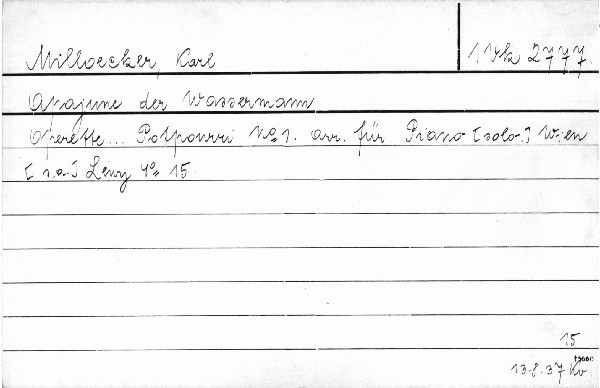 Milloecker, Karl
1 Vk 2777.
Apajune der Wassermann
Operette... Potpourri No 1. arr. für Piano [solo.] Wien
[s.a.] Lewy 4o 15
15
13.8.37 Kv.